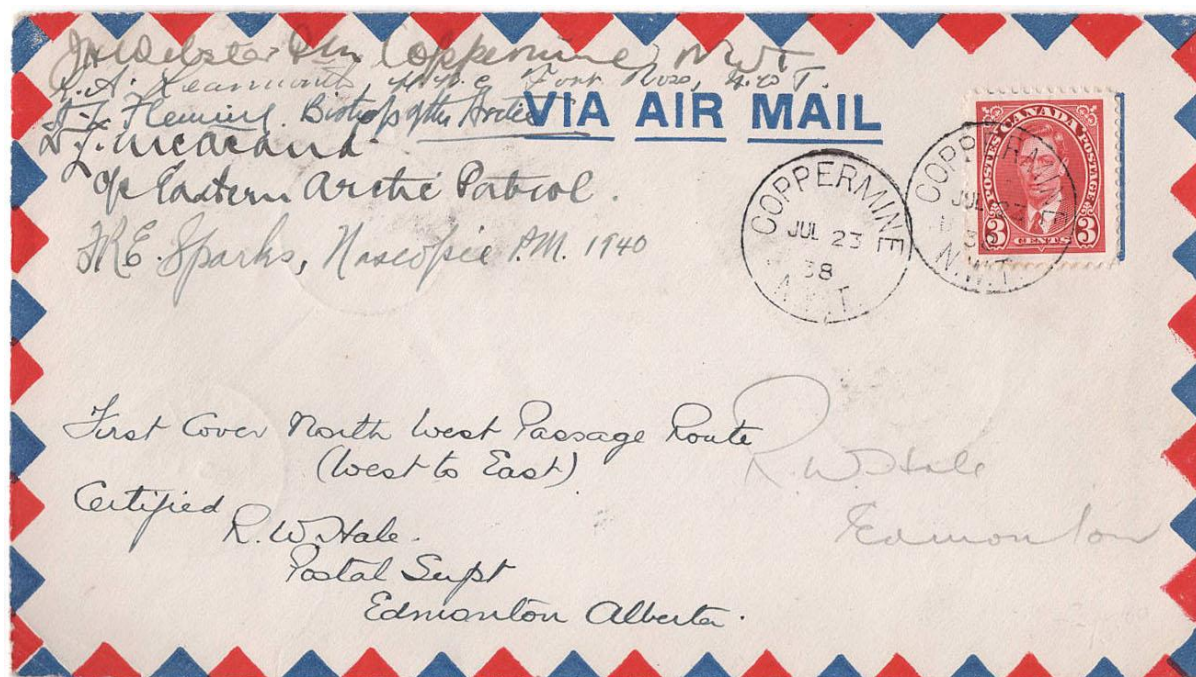 J H Webster P.M. Coppermine, NWT.
L. A. Learmonth, H.B.C. Fort Ross, N.W.T.
Fleming Bishop of the Arctic
VIA AIR MAIL
D. L. McKeand
o/c Eastern Arctic Patrol.
F.R.E. Sparks, Nascopie P.M. 1940
CANADA
POSTES POSTAGE
3 CENTS 3
COPPERMINE
JUL 23
38
N.W.T.
COPPERMINE
JUL 23
38
N.W.T.
First Cover North West Passage Route
(West to East)
Certified
R. W. Hale.
Postal Supt
Edmonton Alberta.
R. W. Hale
Edmonton